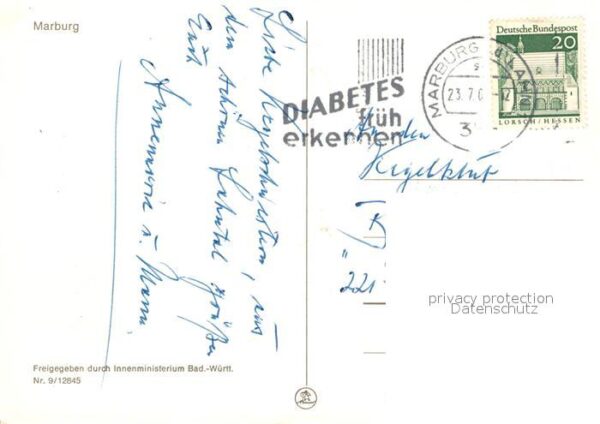 Marburg
Liebe Kegelschwestern, aus
dem schönen Lahntal grüßen
Euch
Annemarie u. Mann
Freigegeben durch Innenministerium Bad.-Württ.
Nr. 9/12845
DIABETES
früh
erkennen
MARBURG
23.7.6
12
3
Deutsche Bundespost
20
LORSCH/HESSEN
An den
Kegelklub
221
privacy protection
Datenschutz